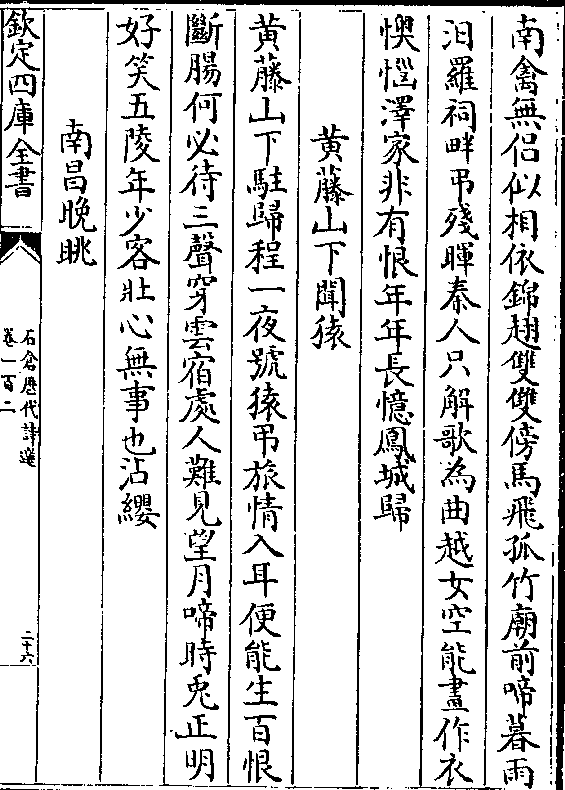 南禽無侣似相依錦翅雙雙傍馬飛孤竹廟前啼暮雨
汨羅祠畔弔殘暉秦人只解歌為曲越女空能畫作衣
懊惱澤家非有恨年年長憶鳳城歸
黄藤山下聞猿
黄藤山下駐歸程一夜號猿弔旅情入耳便能生百恨
斷腸何必待三聲穿雲宿處人難見望月啼時兎正明
好笑五陵年少客壯心無事也沾纓
南昌晚眺
欽定四庫全書
石倉歴代詩選
卷一百二
二十六